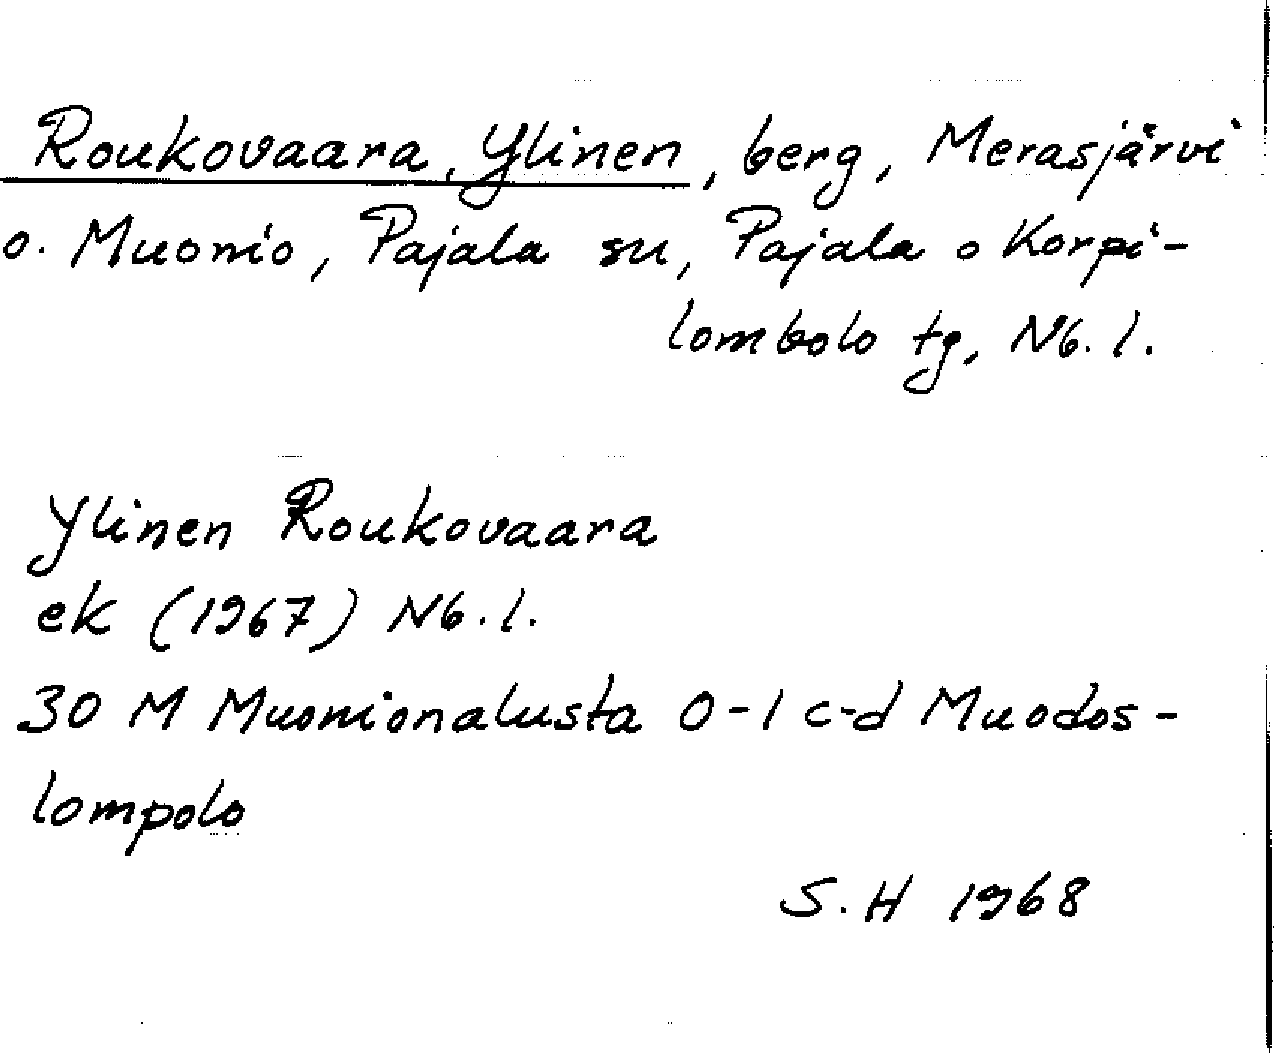 Roukovaara, Ylinen, berg, Merasjärvi
o. Muonio, Pajala su, Pajala o Korpi-
lombolo tg, Nb. l.
Ylinen Roukovaara
ek (1967) Nb. l.
30 M Muonionalusta 0-1 c-d Muodos-
lompolo
S. H 1968